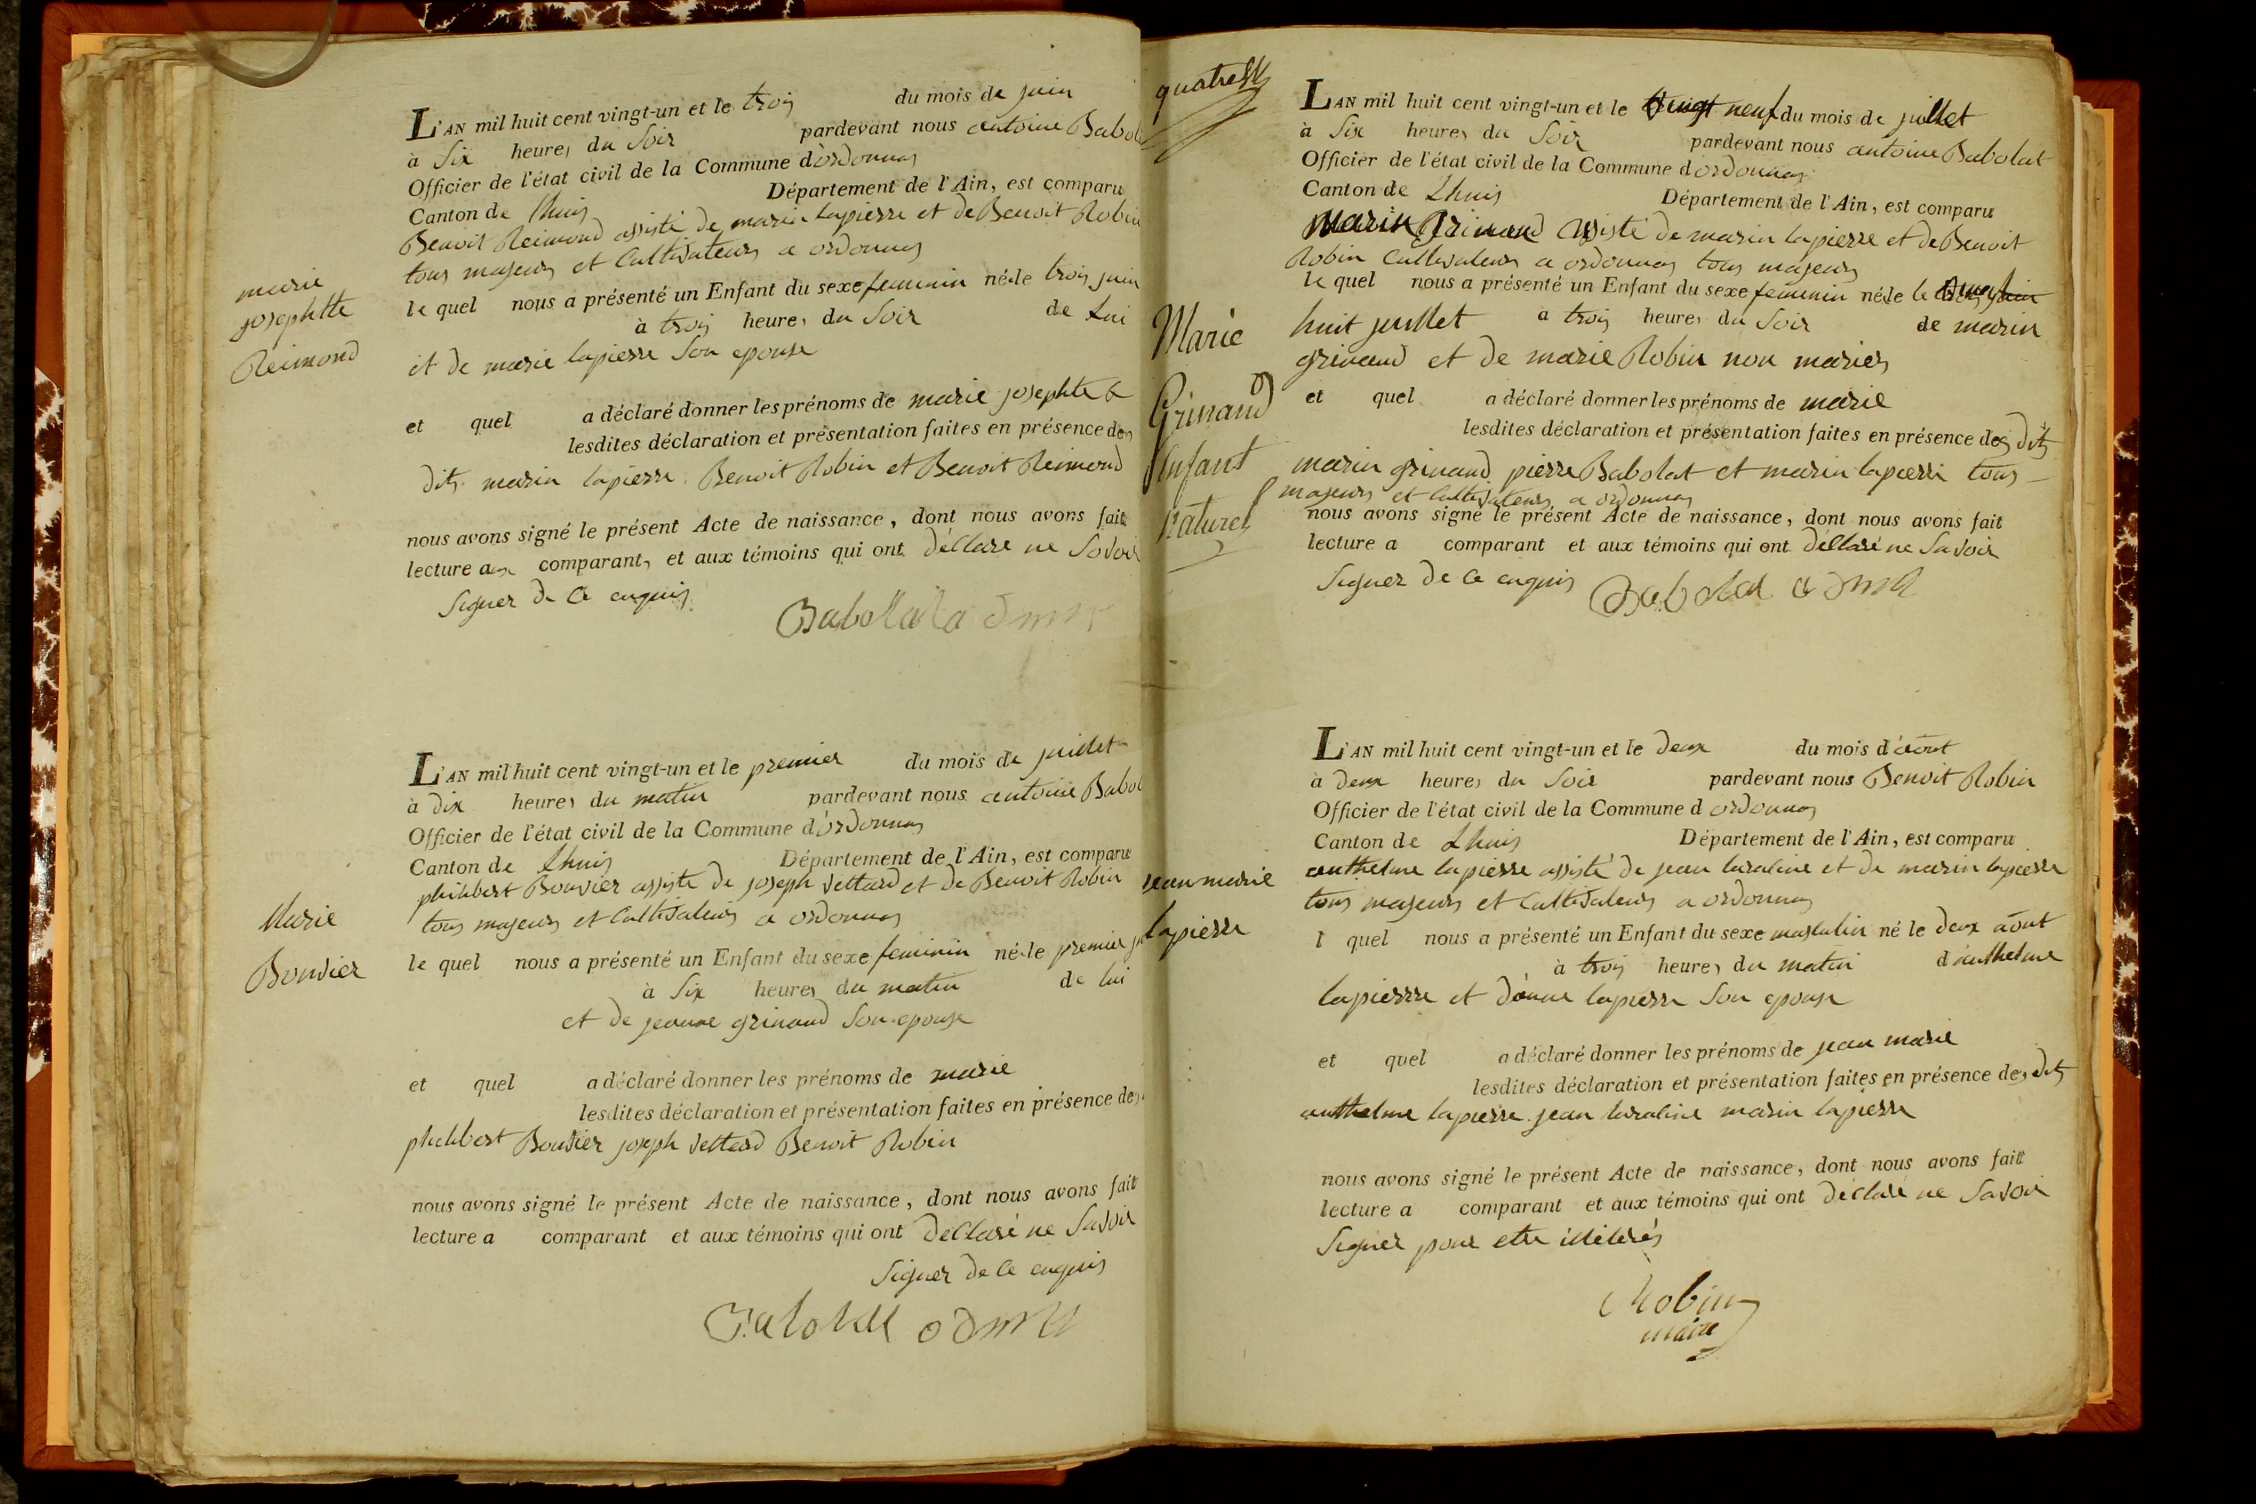 L'AN mil huit cent vingt-un et le trois du mois de juin
à Six heures du Soir pardevant nous antoine Babol
Officier de l'état civil de la Commune d'ordonnas
Canton de Lhuis Département de l'Ain, est comparu
Benoit Reimond assisté de marin lapierre et de Benoit Robin
tous majeurs et Cultivateurs a ordonnas
le quel nous a présenté un Enfant du sexe feminin né le trois juin
à trois heures du Soir de Lui
et de marie lapierre Son epouse
et quel a déclaré donner les prénoms de marie josephte
lesdites déclaration et présentation faites en présence des
dits marin lapierre Benoit Robin et Benoit Reimond
nous avons signé le présent Acte de naissance, dont nous avons fait
lecture aux comparants et aux témoins qui ont déclaré ne Savoir
Signer de Ce enquis
marie
josephtte
Reimond
L'AN mil huit cent vingt-un et le premier du mois de juillet
à dix heures du matin pardevant nous antoine Babol
Officier de l'état civil de la Commune d'ordonnas
Canton de Lhuis Département de l'Ain, est comparu
philibert Bouvier assisté de joseph Vettard et de Benoit Robin
tous majeurs et Cultivateurs a ordonnas
le quel nous a présenté un Enfant du sexe feminin né le premier
à Six heures du matin de lui
et de jeanne grinand Son epouse
et quel a déclaré donner les prénoms de marie
lesdites déclaration et présentation faites en présence des
philibert Bouvier joseph Vettard Benoit Robin
nous avons signé le présent Acte de naissance, dont nous avons fait
lecture a comparant et aux témoins qui ont déclaré ne Savoir
Signer de Ce enquis
Marie
Bouvier
L'AN mil huit cent vingt-un et le vingt neuf du mois de juillet
à Six heures du Soir pardevant nous antoine Babolat
Officier de l'état civil de la Commune d'ordonnas
Canton de Lhuis Département de l'Ain, est comparu
Marin Grinand assisté de marin lapierre et de Benoit
Robin Cultivateurs a ordonnas tous majeurs
le quel nous a présenté un Enfant du sexe feminin né le le
huit juillet a trois heures du Soir de marin
grinand et de marie Robin non mariés
et quel a déclaré donner les prénoms de marie
lesdites déclaration et présentation faites en présence des dits
marin grinand pierre Babolat et marin lapierre tous
majeurs et Cultivateurs a ordonnas
nous avons signé le présent Acte de naissance, dont nous avons fait
lecture a comparant et aux témoins qui ont déclaré ne Savoir
Signer de Ce enquis
Marie
Grinand
Enfant
Naturel
L'AN mil huit cent vingt-un et le deux du mois d'août
à deux heures du Soir pardevant nous Benoit Robin
Officier de l'état civil de la Commune d ordonnas
Canton de Lhuis Département de l'Ain, est comparu
anthelme lapierre assisté de jean et de marin lapierre
tous majeurs et Cultivateurs a ordonnas
l quel nous a présenté un Enfant du sexe masculin né le deux août
à trois heures du matin d'anthelme
lapierre et d'anne lapierre Son epouse
et quel a déclaré donner les prénoms de jean marie
lesdites déclaration et présentation faites en présence des dits
anthelme lapierre jean marin lapierre
nous avons signé le présent Acte de naissance, dont nous avons fait
lecture a comparant et aux témoins qui ont déclaré ne Savoir
Signer pour etre illiterés
Robin
maire
jean marie
lapierre